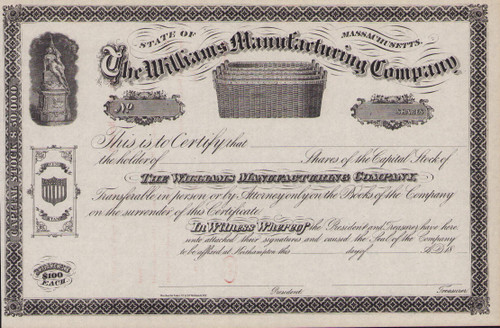 STATE OF MASSACHUSETTS.
The Williams Manufacturing Company
No
SHARES
CAPITAL STOCK $50,000
This is to Certify that
the holder of Shares of the Capital Stock of
THE WILLIAMS MANUFACTURING COMPANY,
Transferable in person or by Attorney only on the Books of the Company
on the surrender of this Certificate
In Witness Whereof the President and Treasurer have here
unto attached their signatures and caused the Seal of the Company
to be affixed at Northampton this day of A.D. 18
SHARES
$100
EACH
President.
Treasurer.